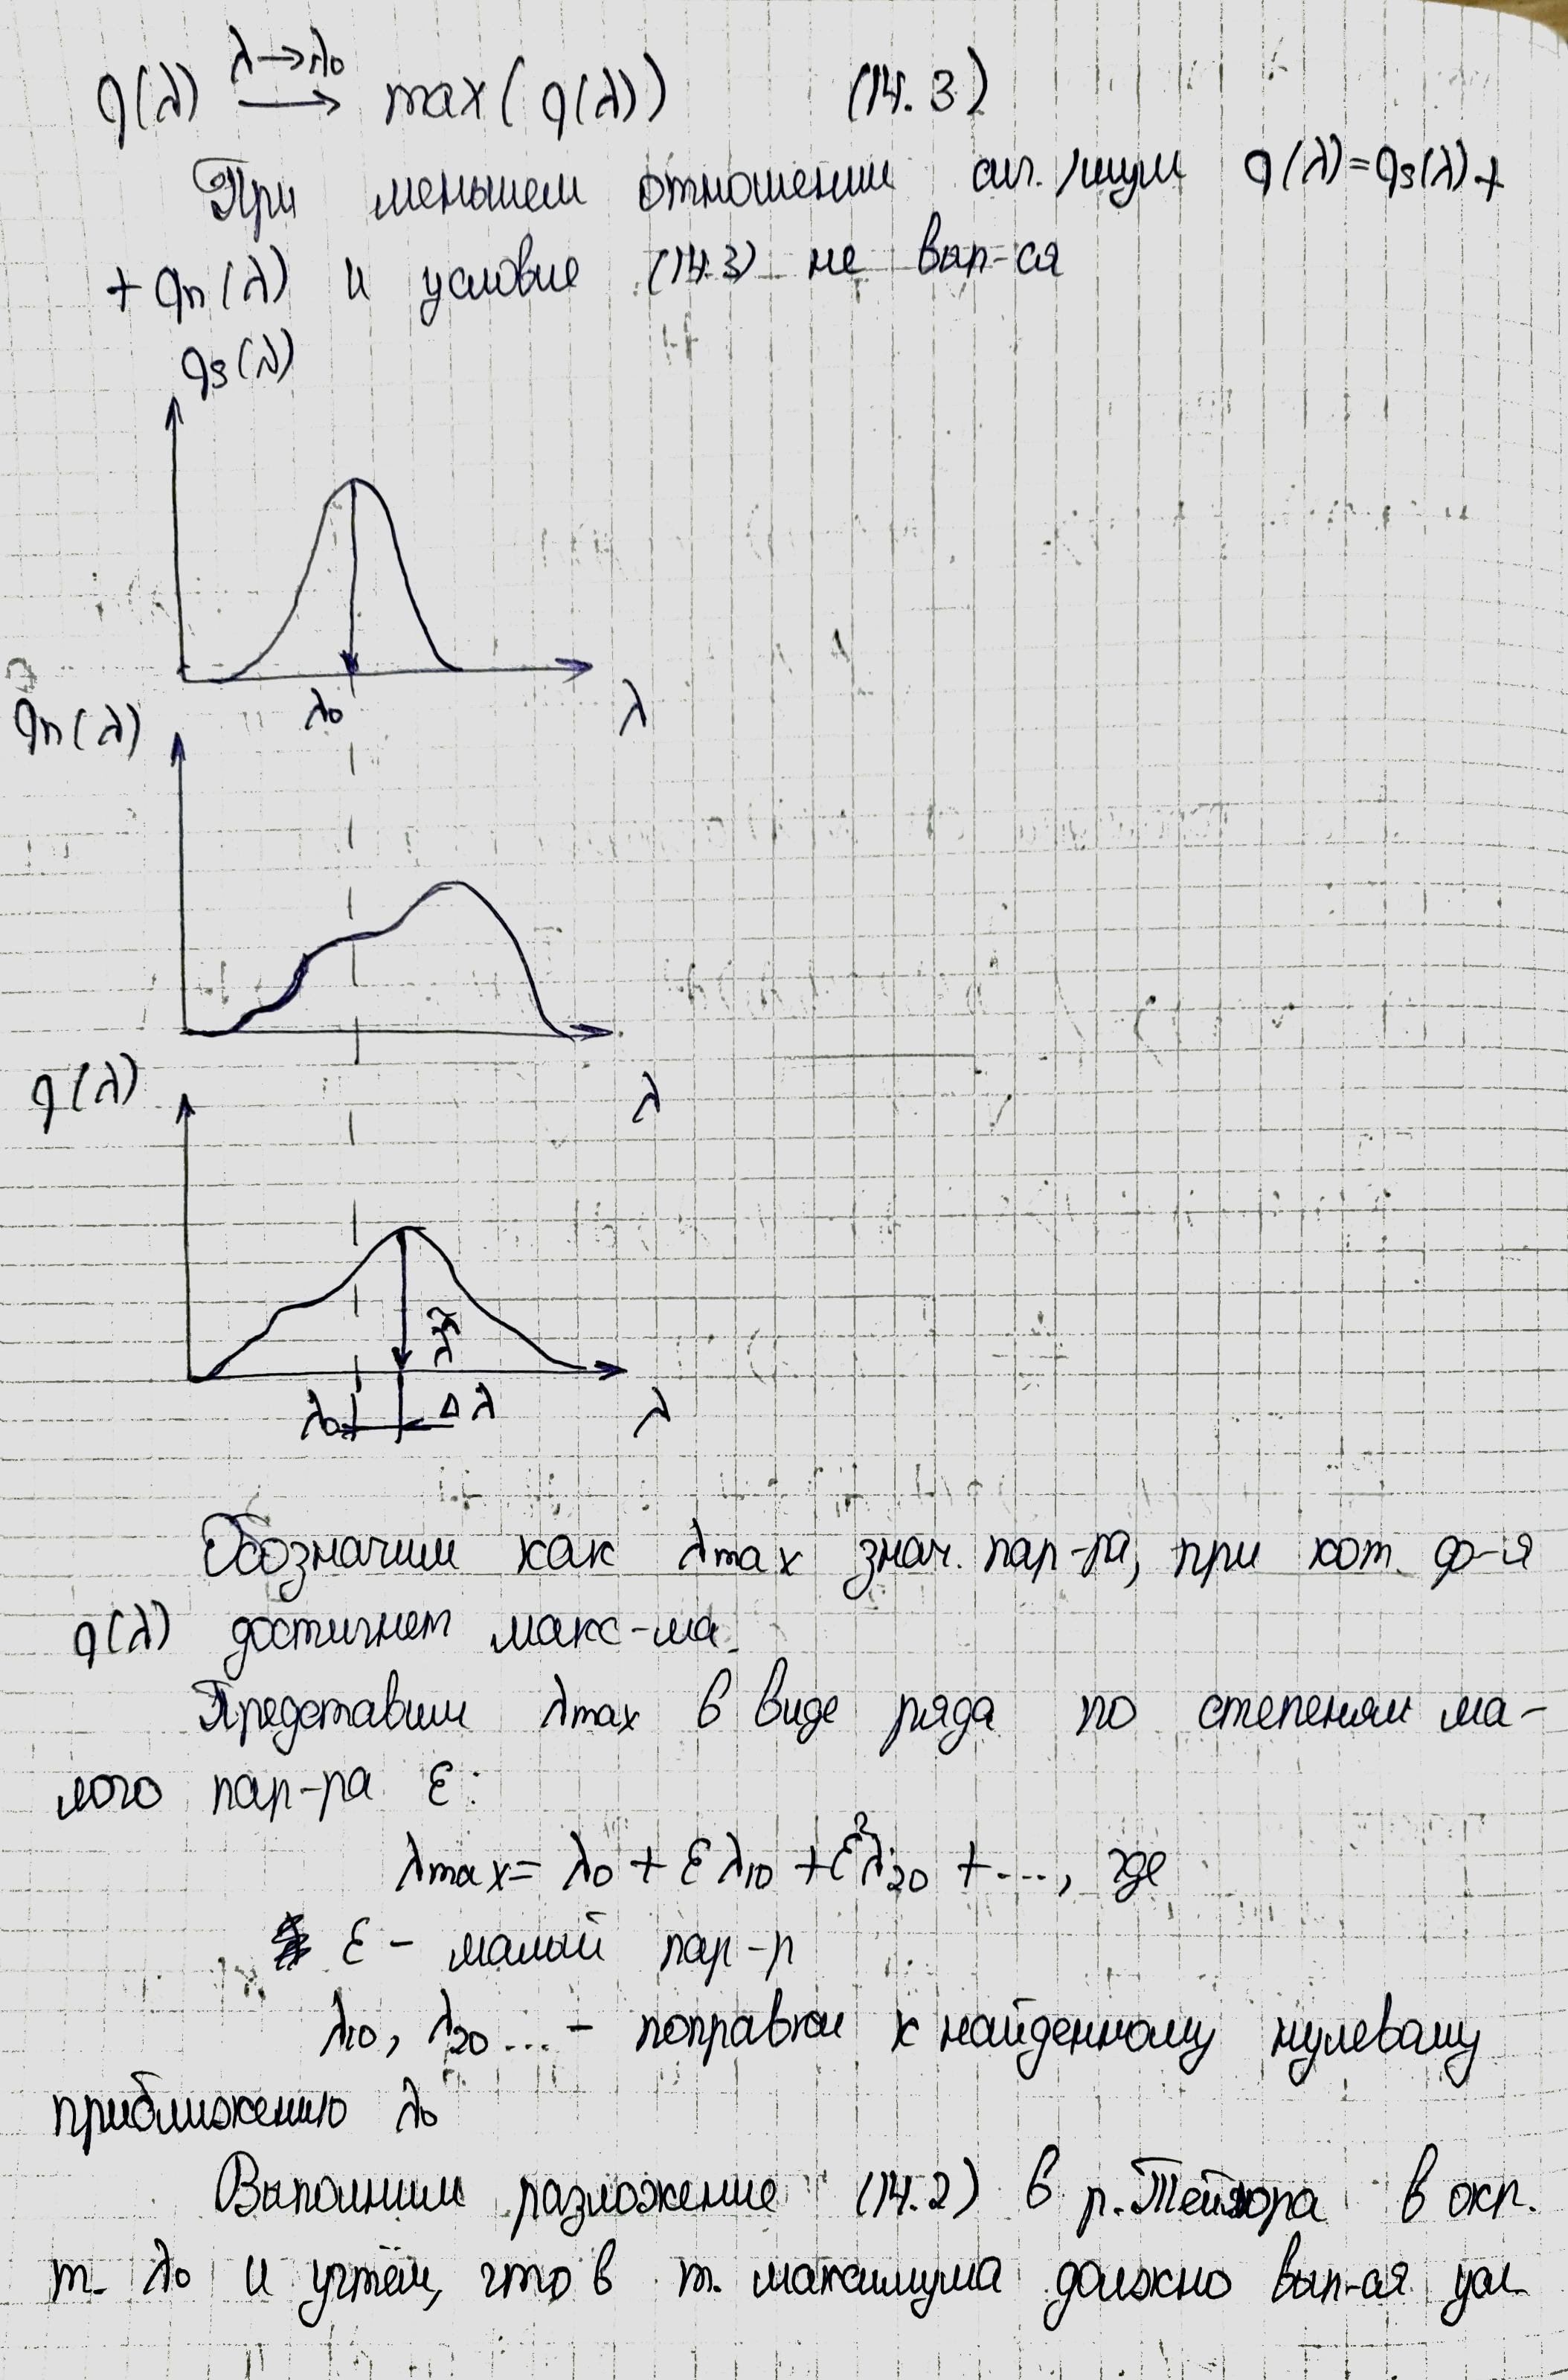 q(λ) λ→λ0 → max(q(λ)) (14.3)
При меньшем отношении сиг./шум q(λ)=qs(λ)+
+ qn(λ) и условие (14.3) не вып-ся
qs(λ)
λ0 λ
qn(λ)
λ
q(λ)
λ̂
λ0 Δλ λ
Обозначим как λmax знач. пар-ра, при кот. ф-я
q(λ) достигнет макс-ма.
Представим λmax в виде ряда по степеням ма-
лого пар-ра ε:
λmax = λ0 + ελ10 + ε²λ20 + ..., где
ε - малый пар-р
λ10, λ20 ... - поправки к найденному нулевому
приближению λ0
Выполним разложение (14.2) в р. Тейлора в окр.
т. λ0 и учтём, что в т. максимума должно вып-ся усл